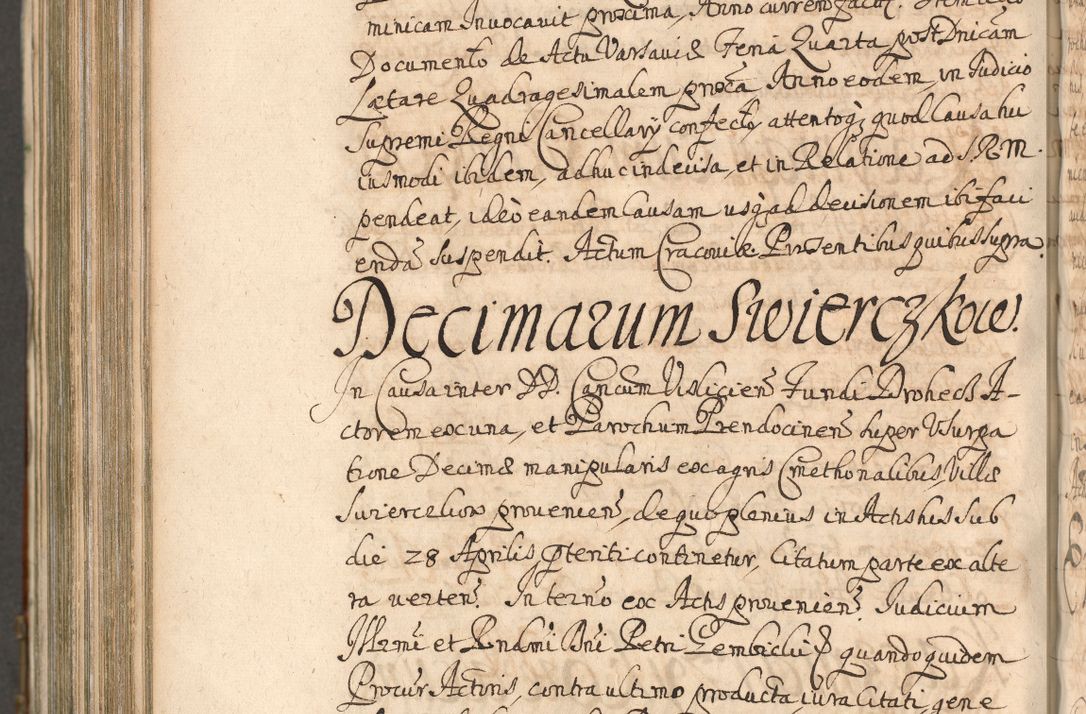 minicam Invocavit proxima, Anno currenti
Documento de Actu Varsaviæ Feria Quarta post Dnicam
Lætare Quadragesimalem proxã Anno eodem, in Iudicio
Supremi Regni Cancellarÿ confecto, attentoq; quod Causa hu
iusmodi ibidem, adhuc indecisa, et in Relatione ad S. R. M.
pendeat, ideò eandem Causam usq; ad decisionem ibi faci
endã suspendit. Actum Cracoviæ. Præsentibus quibus supra.
Decimarum Swierczkow.
In Causa inter DD. Cancum Visliciens Fundi Drohecz A-
ctorem ex una, et Parochum Prendocinens super Usurpa
tione Decimæ manipularis ex agris Cmethonalibus, Villæ
Swierczkow proveniens, de quo plenius in Actis his sub
die 28 Aprilis, ptenti continetur, Citatum parte ex alte
ra vertens. In termo ex Actis proveniens. Iudicium
Illrmi et Rndmi Dni Petri Gembiclii quandoquidem
Procur Actoris, contra ultimo producta iura Citati, gene